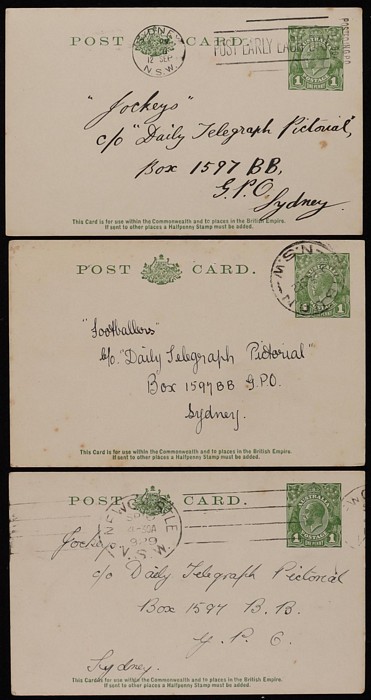 POST CARD.
SYDNEY
12 SEP
N.S.W.
POST EARLY EACH DAY
1 1
"Jockeys"
c/o "Daily Telegraph Pictorial",
Box 1597 BB,
G.P.O.
Sydney.
This Card is for use within the Commonwealth and to places in the British Empire.
If sent to other places a Halfpenny Stamp must be added.
POST CARD.
N.S.W.
1
"Footballers"
c/o "Daily Telegraph Pictorial"
Box 1597BB G.P.O.
Sydney.
This Card is for use within the Commonwealth and to places in the British Empire.
If sent to other places a Halfpenny Stamp must be added.
POST CARD.
AUSTRALIA
POSTAGE
1 1
ONE PENNY
NEWCASTLE
1929
N.S.W.
Jockeys
c/o Daily Telegraph Pictorial
Box 1597 B.B.
G.P.O.
Sydney.
This Card is for use within the Commonwealth and to places in the British Empire.
If sent to other places a Halfpenny Stamp must be added.